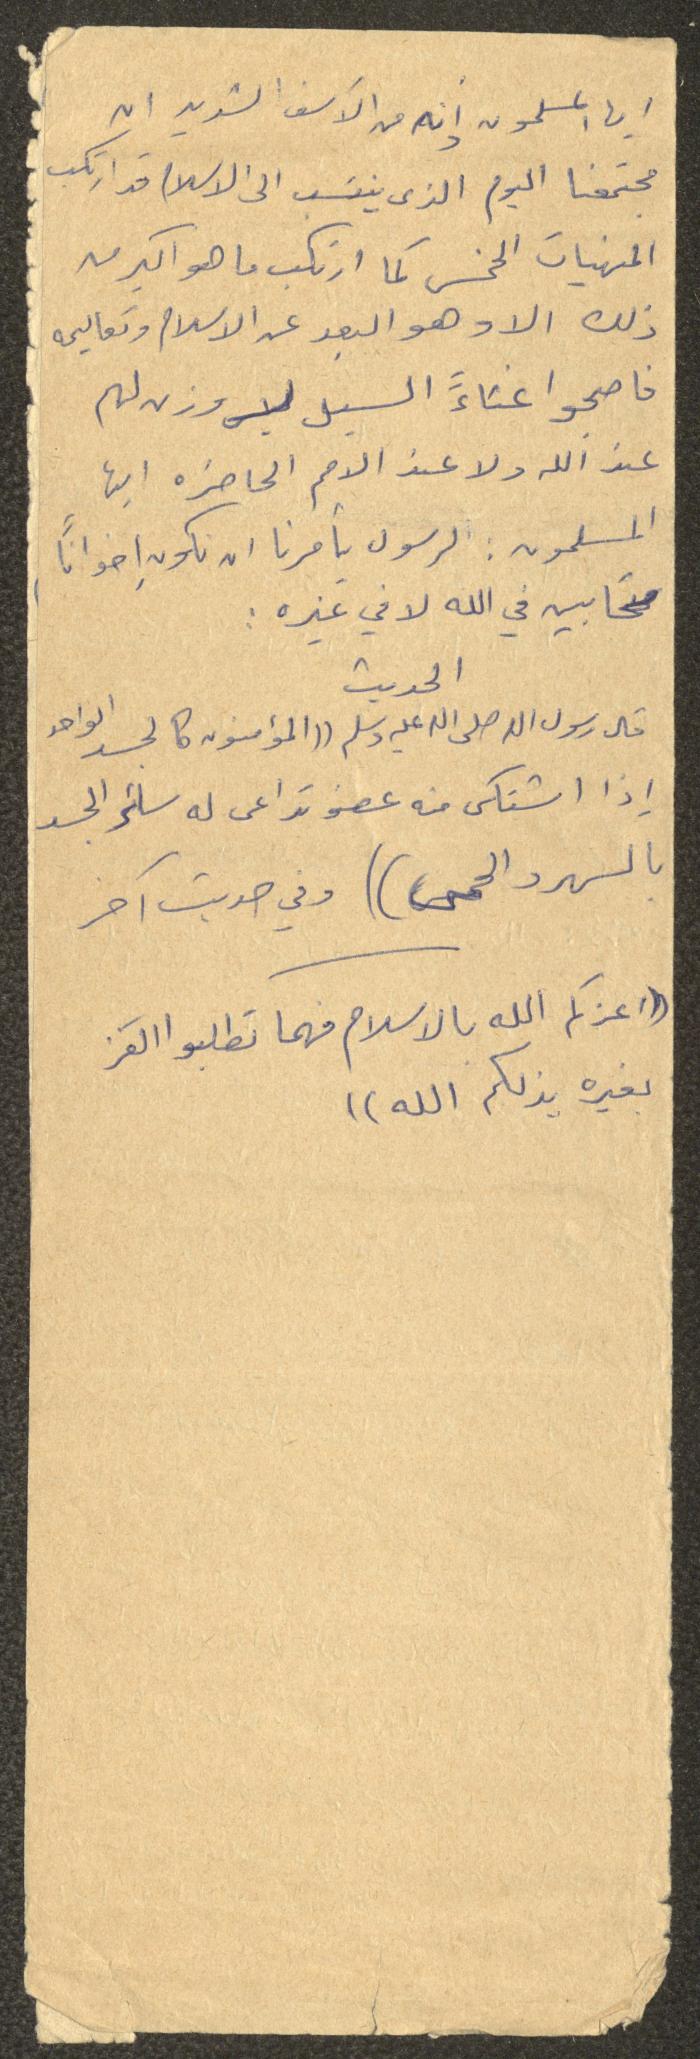 ايها المسلمون وأنه من الأسف الشديد ان
مجتمعنا اليوم الذي ينتسب الى الاسلام قد ارتكب
المنهيات الخمس كما ارتكب ما هو اكبر من
ذلك الا وهو البعد عن الاسلام وتعاليمه
فاصبحوا غثاءً السيل لا وزن لهم
عند الله ولا عند الامم الحاضره ايها
المسلمون : الرسول يأمرنا ان نكون إخوانًا
متحابين في الله لا في غيره :
الحديث
قال رسول الله صلى الله عليه وسلم ((المؤمنون كالجسد الواحد
إذا اشتكى منه عضو تداعى له سائر الجسد
بالسهر والحمى)) وفي حديث آخر
((اعزكم الله بالاسلام فمهما تطلبوا العز
بغيره يذلكم الله))